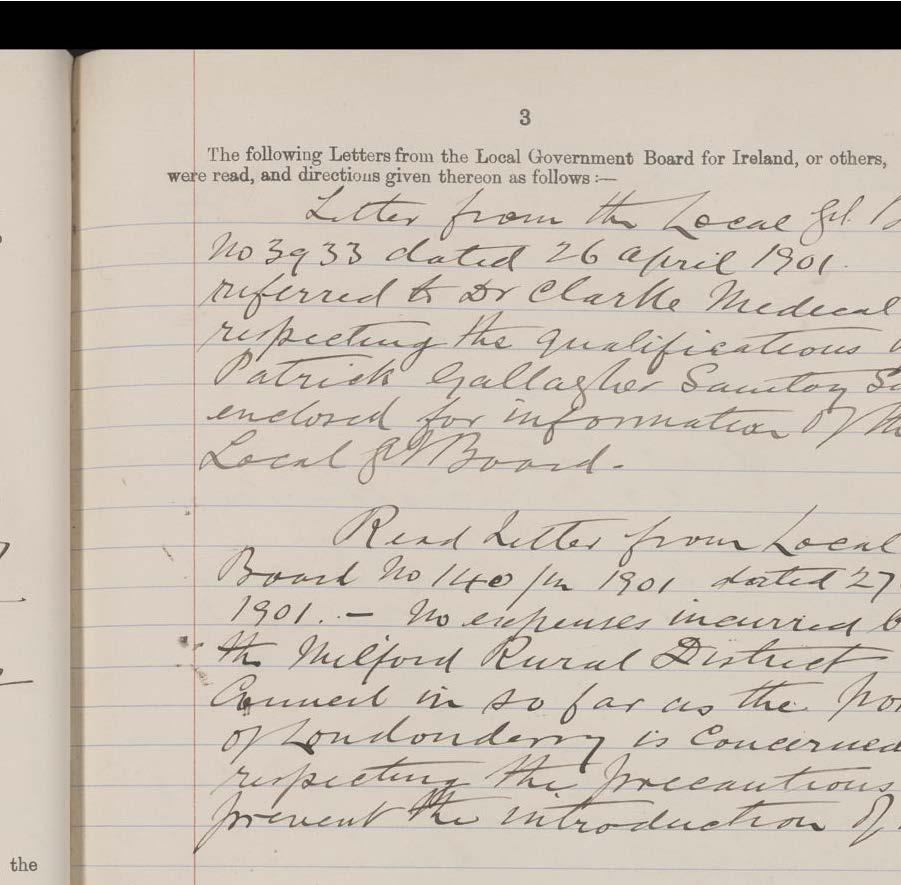 3
The following Letters from the Local Government Board for Ireland, or others,
were read, and directions given thereon as follows :—
Letter from the Local Gd. B
No 3933 dated 26 april 1901.
referred to Dr Clarke Medical
respecting the qualifications
Patrick Gallagher Sanitary S
enclosed for information of th
Local Gd Board.
Read Letter from Local
Board No 140/m 1901 dated 27
1901. — No expenses incurred b
the Milford Rural District
Council in so far as the Por
of Londonderry is Concerned
respecting the precautions
prevent the introduction of
the